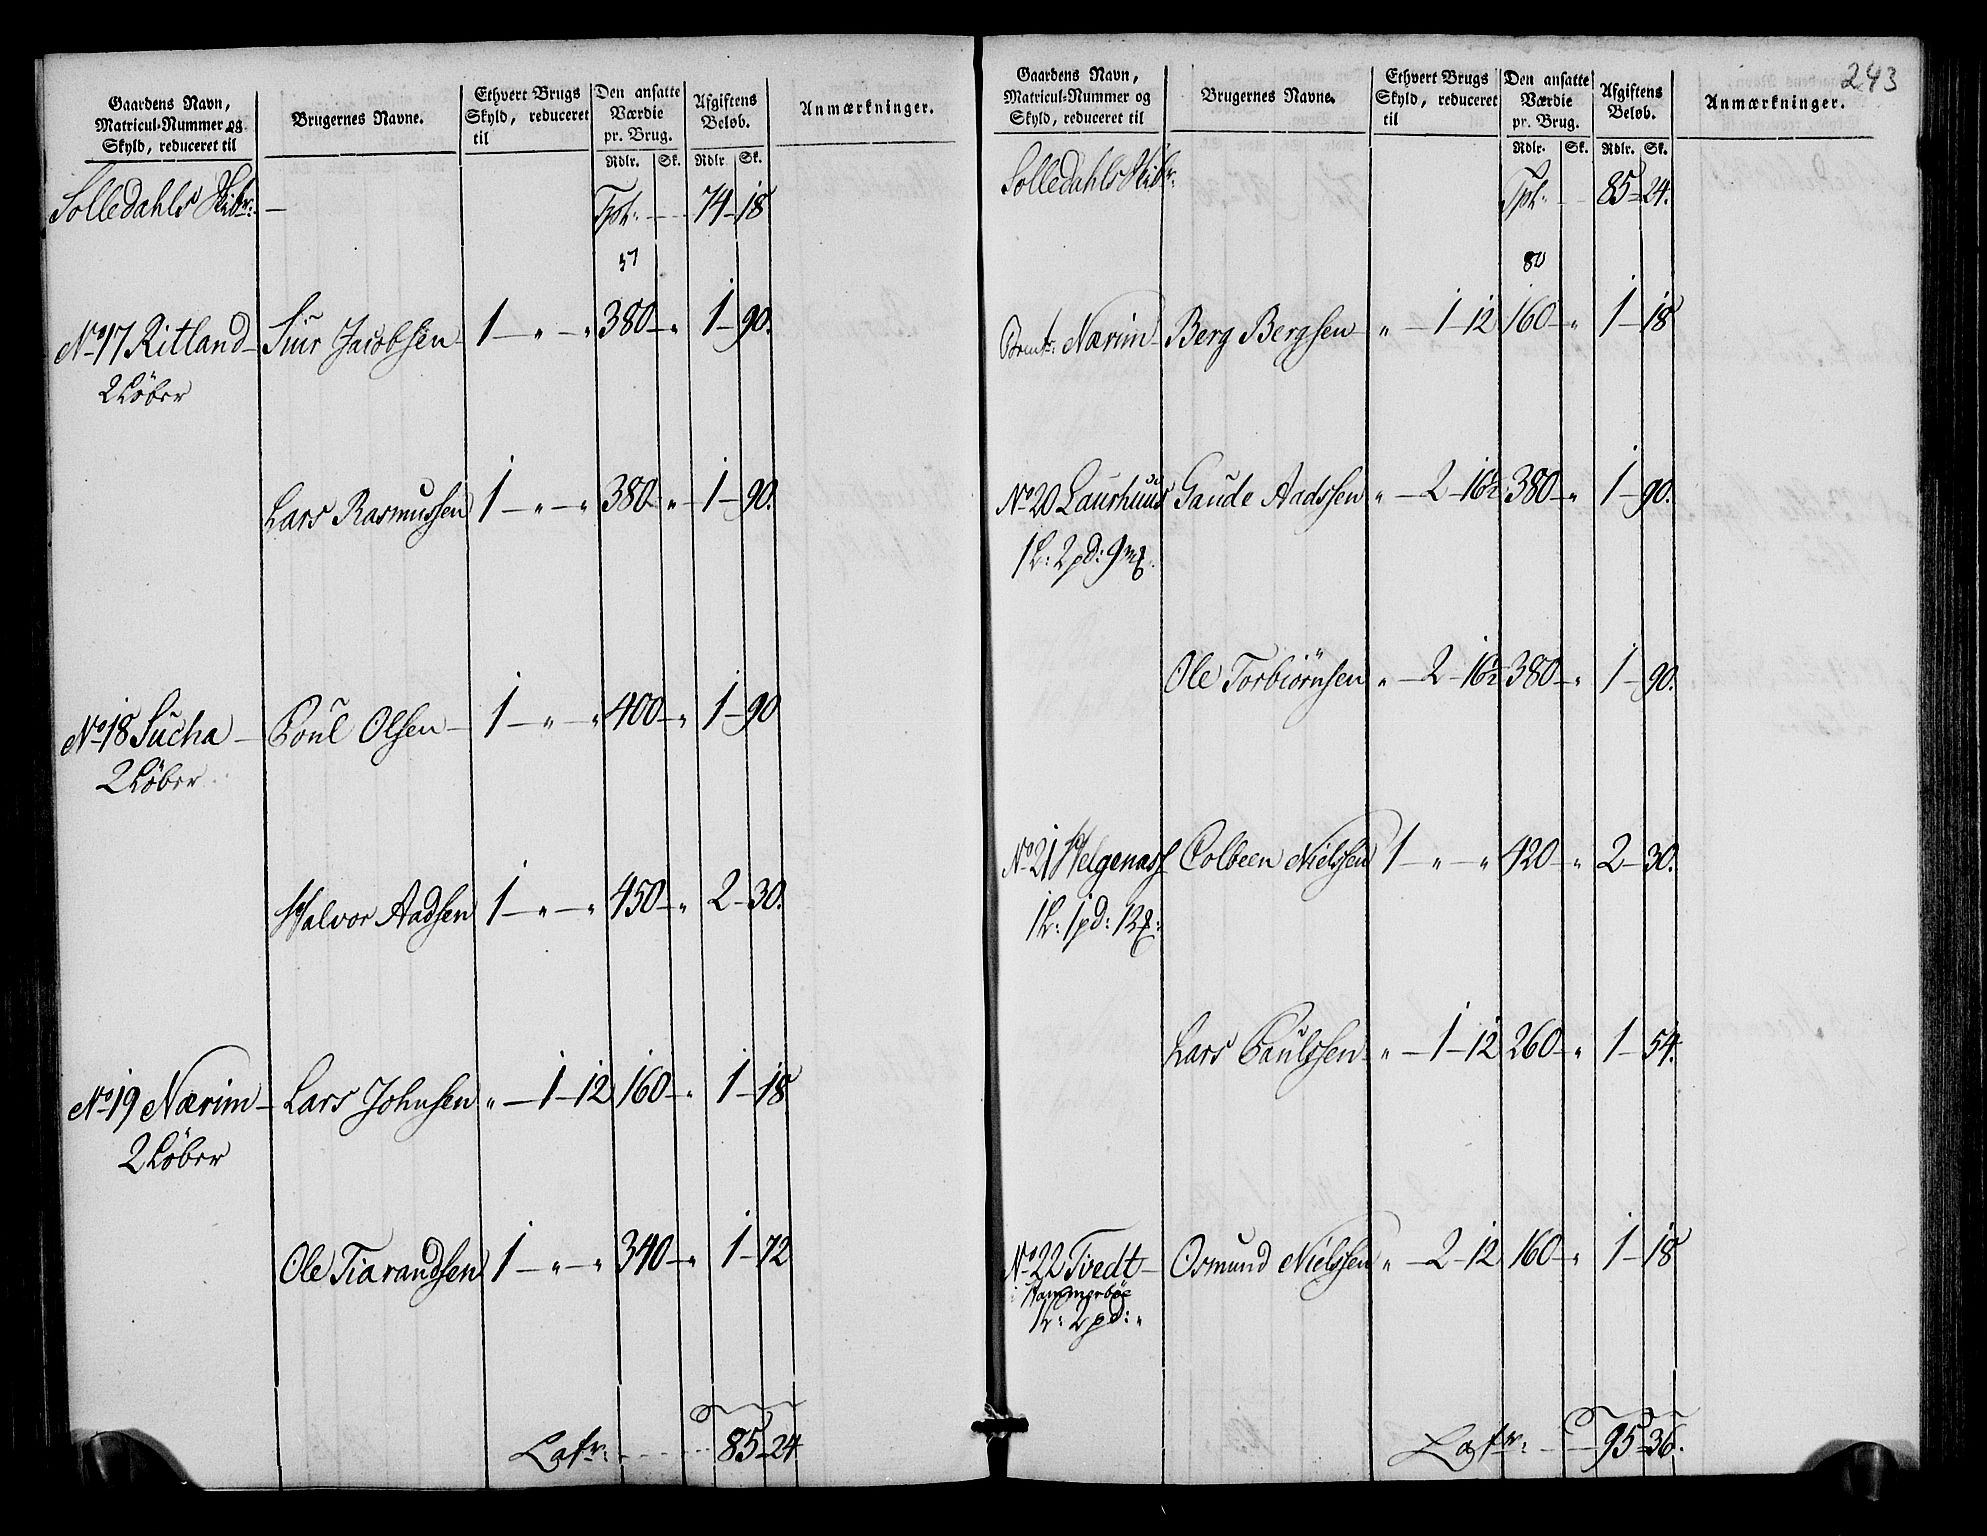 Gaardens Navn, Matricul-Nummer og Skyld, reduceret til
Brugernes Navne.
Ethvert Brugs Skyld, reduceret til
Den ansatte Værdie pr. Brug.
Afgiftens Beløb.
Anmærkninger.
Rdlr. Sk. Rdlr. Sk.
Solledahls Skibr: — Tpt: 74 — 18
57
No 17 Ritland — Siur Jacobsen 1 — " — " 380 — " 1 — 90.
2 Løber
Lars Rasmussen 1 — " — " 380 — " 1 — 90.
No 18 Sucha — Poul Olsen — 1 — " — " 400 — " 1 — 90
2 Løber
Halvor Aadsen 1 — " — " 450 — " 2 — 30.
No 19 Nærim — Lars Johnsen " — 1 — 12 160 — " 1 — 18
2 Løber
Ole Tiarandsen 1 — " — " 340 — " 1 — 72
Latr: 85 — 24
243
Gaardens Navn, Matricul-Nummer og Skyld, reduceret til
Brugernes Navne.
Ethvert Brugs Skyld, reduceret til
Den ansatte Værdie pr. Brug.
Afgiftens Beløb.
Anmærkninger.
Rdlr. Sk. Rdlr. Sk.
Solledahls Skibr: Tpt: 85 — 24.
80
Nærim — Berg Bergsen — " — 1 — 12 160 — " 1 — 18
No 20 Laurhuus Gaude Aadssen " — 2 — 16½ 380 — " 1 — 90.
1 L: 2 pd: 9 mk.
Ole Torbiørnsen " — 2 — 16½ 380 — " 1 — 90.
No 21 Helgenass Colbeen Nielssen 1 — " — " 420 — " 2 — 30.
1 L: 1 pd: 12
Lars Paulssen — " — 1 — 12 260 — " 1 — 54.
No 22 Tvedt — Osmund Nielssen " — 2 — 12 160 — " 1 — 18
i Hammerbøe
1 L: 2 pd: "
Latr: 95 — 36.